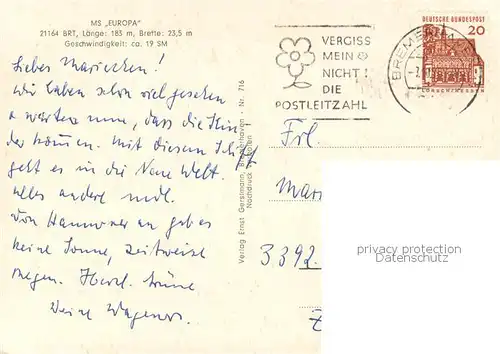 MS „EUROPA“
21164 BRT, Länge: 183 m, Breite: 23,5 m
Geschwindigkeit: ca. 19 SM
Liebes Mariechen!
Wir haben schon viel gesehen
u. warten nun, dass die Kin-
der kommen. Mit diesem Schiff
geht es in die Neue Welt.
Alles andere mdl.
Von Hannover an gab es
keine Sonne, zeitweise
Regen. Herzl. Grüsse
Deine
Verlag Ernst Gerstmann, Bremerhaven - Nr. 716
Nachdruck verboten!
VERGISS
MEIN
NICHT!
DIE
POSTLEITZAHL
BREME
DEUTSCHE BUNDESPOST
20
LORSCH/HESSEN
Frl.
Mar
3392
privacy protection
Datenschutz